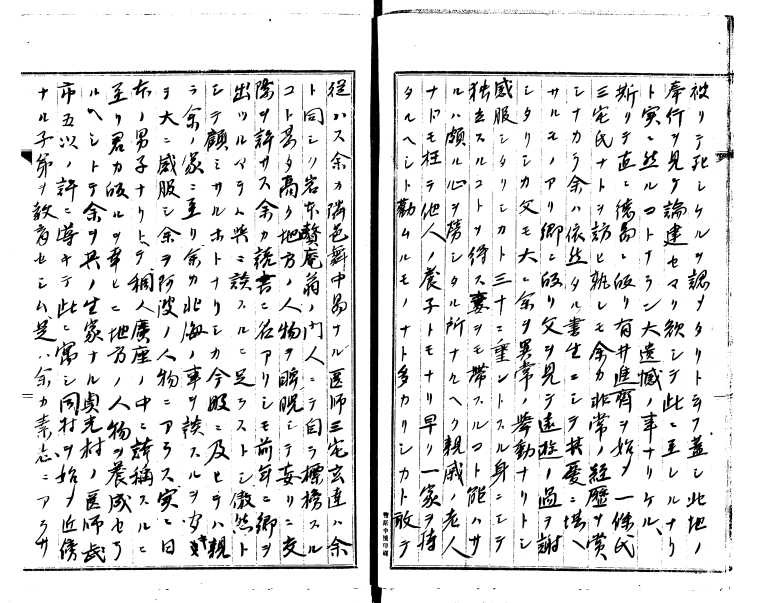 被リテ死シケルヲ認メタリトテヲ蓋シ此地ノ
奉行ヲ見テ論建セマリ欲シテ此ニ至レルナリ
ト実ニ然ルコトナラン大遺憾ノ事ナリケル、
斯リテ直ニ徳島ニ皈リ有井進齊ヲ始メ一條氏
三宅氏ナトヲ訪ヒ孰レモ余カ非常ノ経歴ヲ賞
シナカラ余ハ依然タル書生ニシテ其憂ニ堪ヘ
サルモノアリ郷ニ皈リ父ヲ見テ遠遊ノ過ヲ謝
シタリシカ父モ大ニ余ヲ異常ノ挙動ナリトシ
感服シタリシカト三十ニ垂ントスル身ニシテ
独立スルコトヲ得ス妻ヲモ帯スルコト能ハサ
ルハ頗ル心ヲ労シタル所ナルヘク親戚ノ老人
ナトモ枉テ他人ノ養子トモナリ早ク一家ヲ持
タルヘシト勸ムルモノナト多カリシカト敢テ
從ハス余カ隣邑舞中島ナル医師三宅玄達ハ余
ト同シク岩本贅庵翁ノ門人ニテ自ラ標榜スル
コト甚タ高ク地方ノ人物ヲ睥睨シテ妄リニ交
際ヲ許サス余カ読書ニ名アリシモ前年ニ郷ヲ
出ツルマテハ共ニ談スルニ足ラストシ傲然ト
シテ顧ミサルホトナリシカ今般ニ及ヒテハ親
ラ余ノ家ニ至リ余カ北海ノ事ヲ談スルヲ聞キ
ヲ大ニ感服シ余ヲ阿波ノ人物ニアラス実ニ日
本ノ男子ナリトテ稠人廣座ノ中ニ誇稱スルニ
至リ君カ皈ルヲ幸ヒニ地方ノ人物ヲ養成セラ
ルヘシトテ余ヲ其ノ生家ナル貞光村ノ医師武
市五次ノ許ニ導キテ此ニ寓シ同村ヲ始メ近傍
ナル子弟ヲ教育セシム是ハ余カ素志ニアラサ